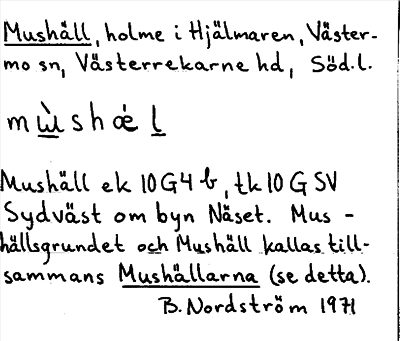 Mushäll, holme i Hjälmaren, Väster-
mo sn, Västerrekarne hd, Söd.l.
Mushäll ek 10G4b, tk 10 G SV
Sydväst om byn Näset. Mus-
hällsgrundet och Mushäll kallas till-
sammans Mushällarna (se detta).
B. Nordström 1971